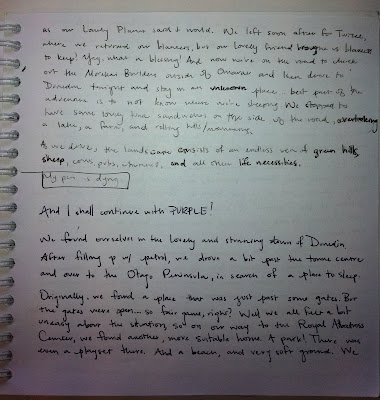 as our Lonely Planet said it would. We left soon after for Twizel,
where we returned our blankets, but our lovely friend brought us blankets
to keep! Yay, what a blessing! And now we're on the road to check
out the Moeraki Boulders outside of Oamaru and then drive to
Dunedin tonight and stay in an unknown place - best part of the
adventure is to not know where we're sleeping. We stopped to
have some lovely tuna sandwiches on the side of the road, overlooking
a lake, a farm, and rolling hills/mountains.
As we drive, the landscape consists of an endless view of green hills,
sheep, cows, pubs, and all other life necessities.
My pen is dying.
And I shall continue with PURPLE!
We found ourselves in the lovely and stunning town of Dunedin
After filling up w/ petrol, we drove a bit past the towne centre
and over to the Otago Peninsula, in search of a place to sleep.
Originally, we found a place that was just past some gates. But
the gates were open... so fair game, right? Well we all felt a bit
uneasy about the situation, so on our way to the Royal Albatross
Center, we found another, more suitable home. A park! There was
even a playset there. And a beach, and very soft ground. We